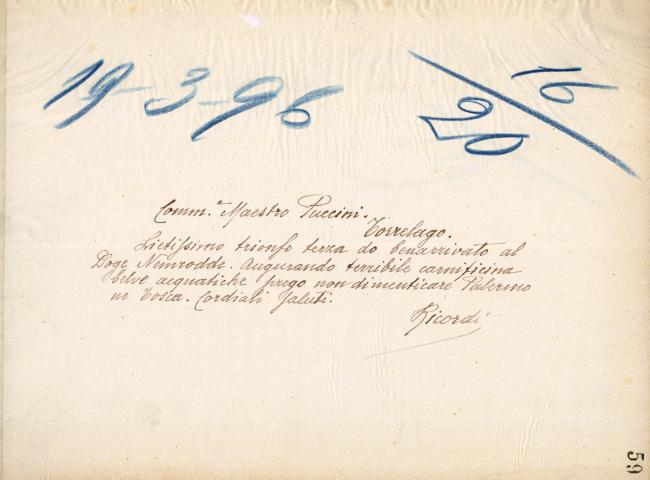 19-3-96
16/20
Comm.e Maestro Puccini.
Torrelago.
Lietissimo trionfo terza do benarrivato al
Doge Nemrodde. Augurando terribile carnificina
belve acquatiche prego non dimenticare Palermo
nè Tosca. Cordiali Saluti.
Ricordi
59